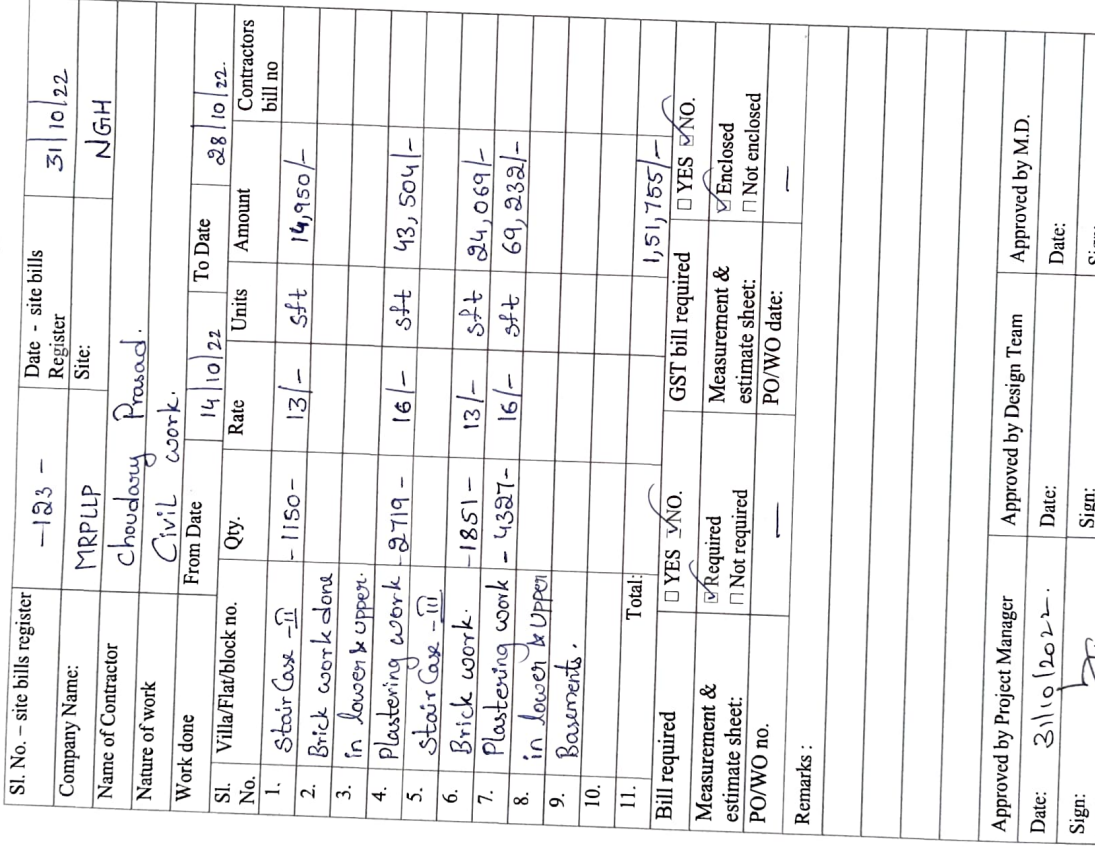 Sl. No. – site bills register –123 – Date - site bills Register 31/10/22
Company Name: MRPLLP Site: NGH
Name of Contractor Choudary Prasad.
Nature of work Civil work.
Work done From Date 14/10/22 To Date 28/10/22.
Sl. No. Villa/Flat/block no. Qty. Rate Units Amount Contractors bill no
1. Stair Case - II - 1150 - 13/- sft 14,950/-
2. Brick work done
3. in lower & upper.
4. Plastering work - 2719 - 16/- sft 43,504/-
5. Stair Case - III
6. Brick work. - 1851 - 13/- sft 24,069/-
7. Plastering work - 4327 - 16/- sft 69,232/-
8. in lower & Upper
9. Basements.
10.
11. Total: 1,51,755/-
Bill required □ YES ☑ NO. GST bill required □ YES ☑ NO.
Measurement & estimate sheet: ☑ Required □ Not required Measurement & estimate sheet: ☑ Enclosed □ Not enclosed
PO/WO no. — PO/WO date: —
Remarks :
Approved by Project Manager Approved by Design Team Approved by M.D.
Date: 31/10/2022. Date: Date:
Sign: Sign: Sign: